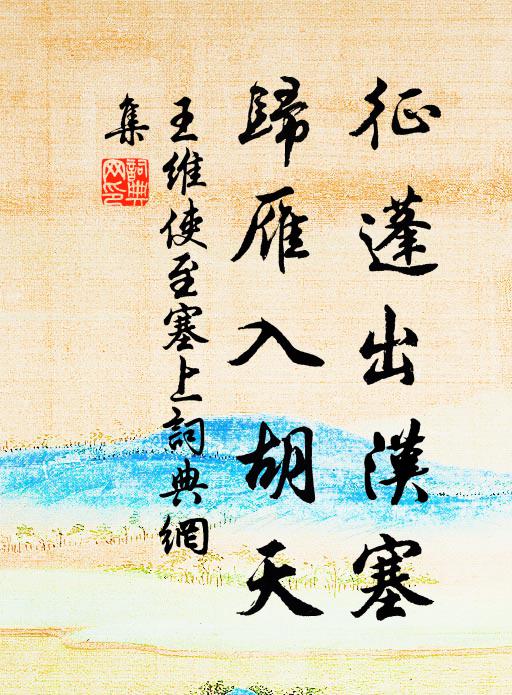 征蓬出漢塞
歸雁入胡天
王維使至塞上詞典網
集
詞典
网印